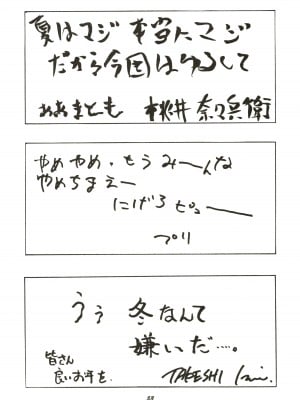 夏はマジ 本当にマジ
だから今回はゆるして
おおまとも 桃井 奈々兵衛
やめやめ・もうみーんな
やめちまえー
にげろ ピューーー
プリ
うぅ 冬なんて
嫌いだ….。
皆さん
良いお年を.
TAKESHI